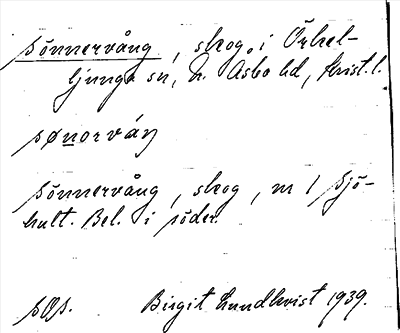 Sönnervång, skog, i Örkel-
ljunga sn, N. Åsbo hd, Krist. l.
sønorváŋ
Sönnervång, skog, nr 1 Sjö-
hult. Bel. i söder.
SOS. Birgit Lundkvist 1939.